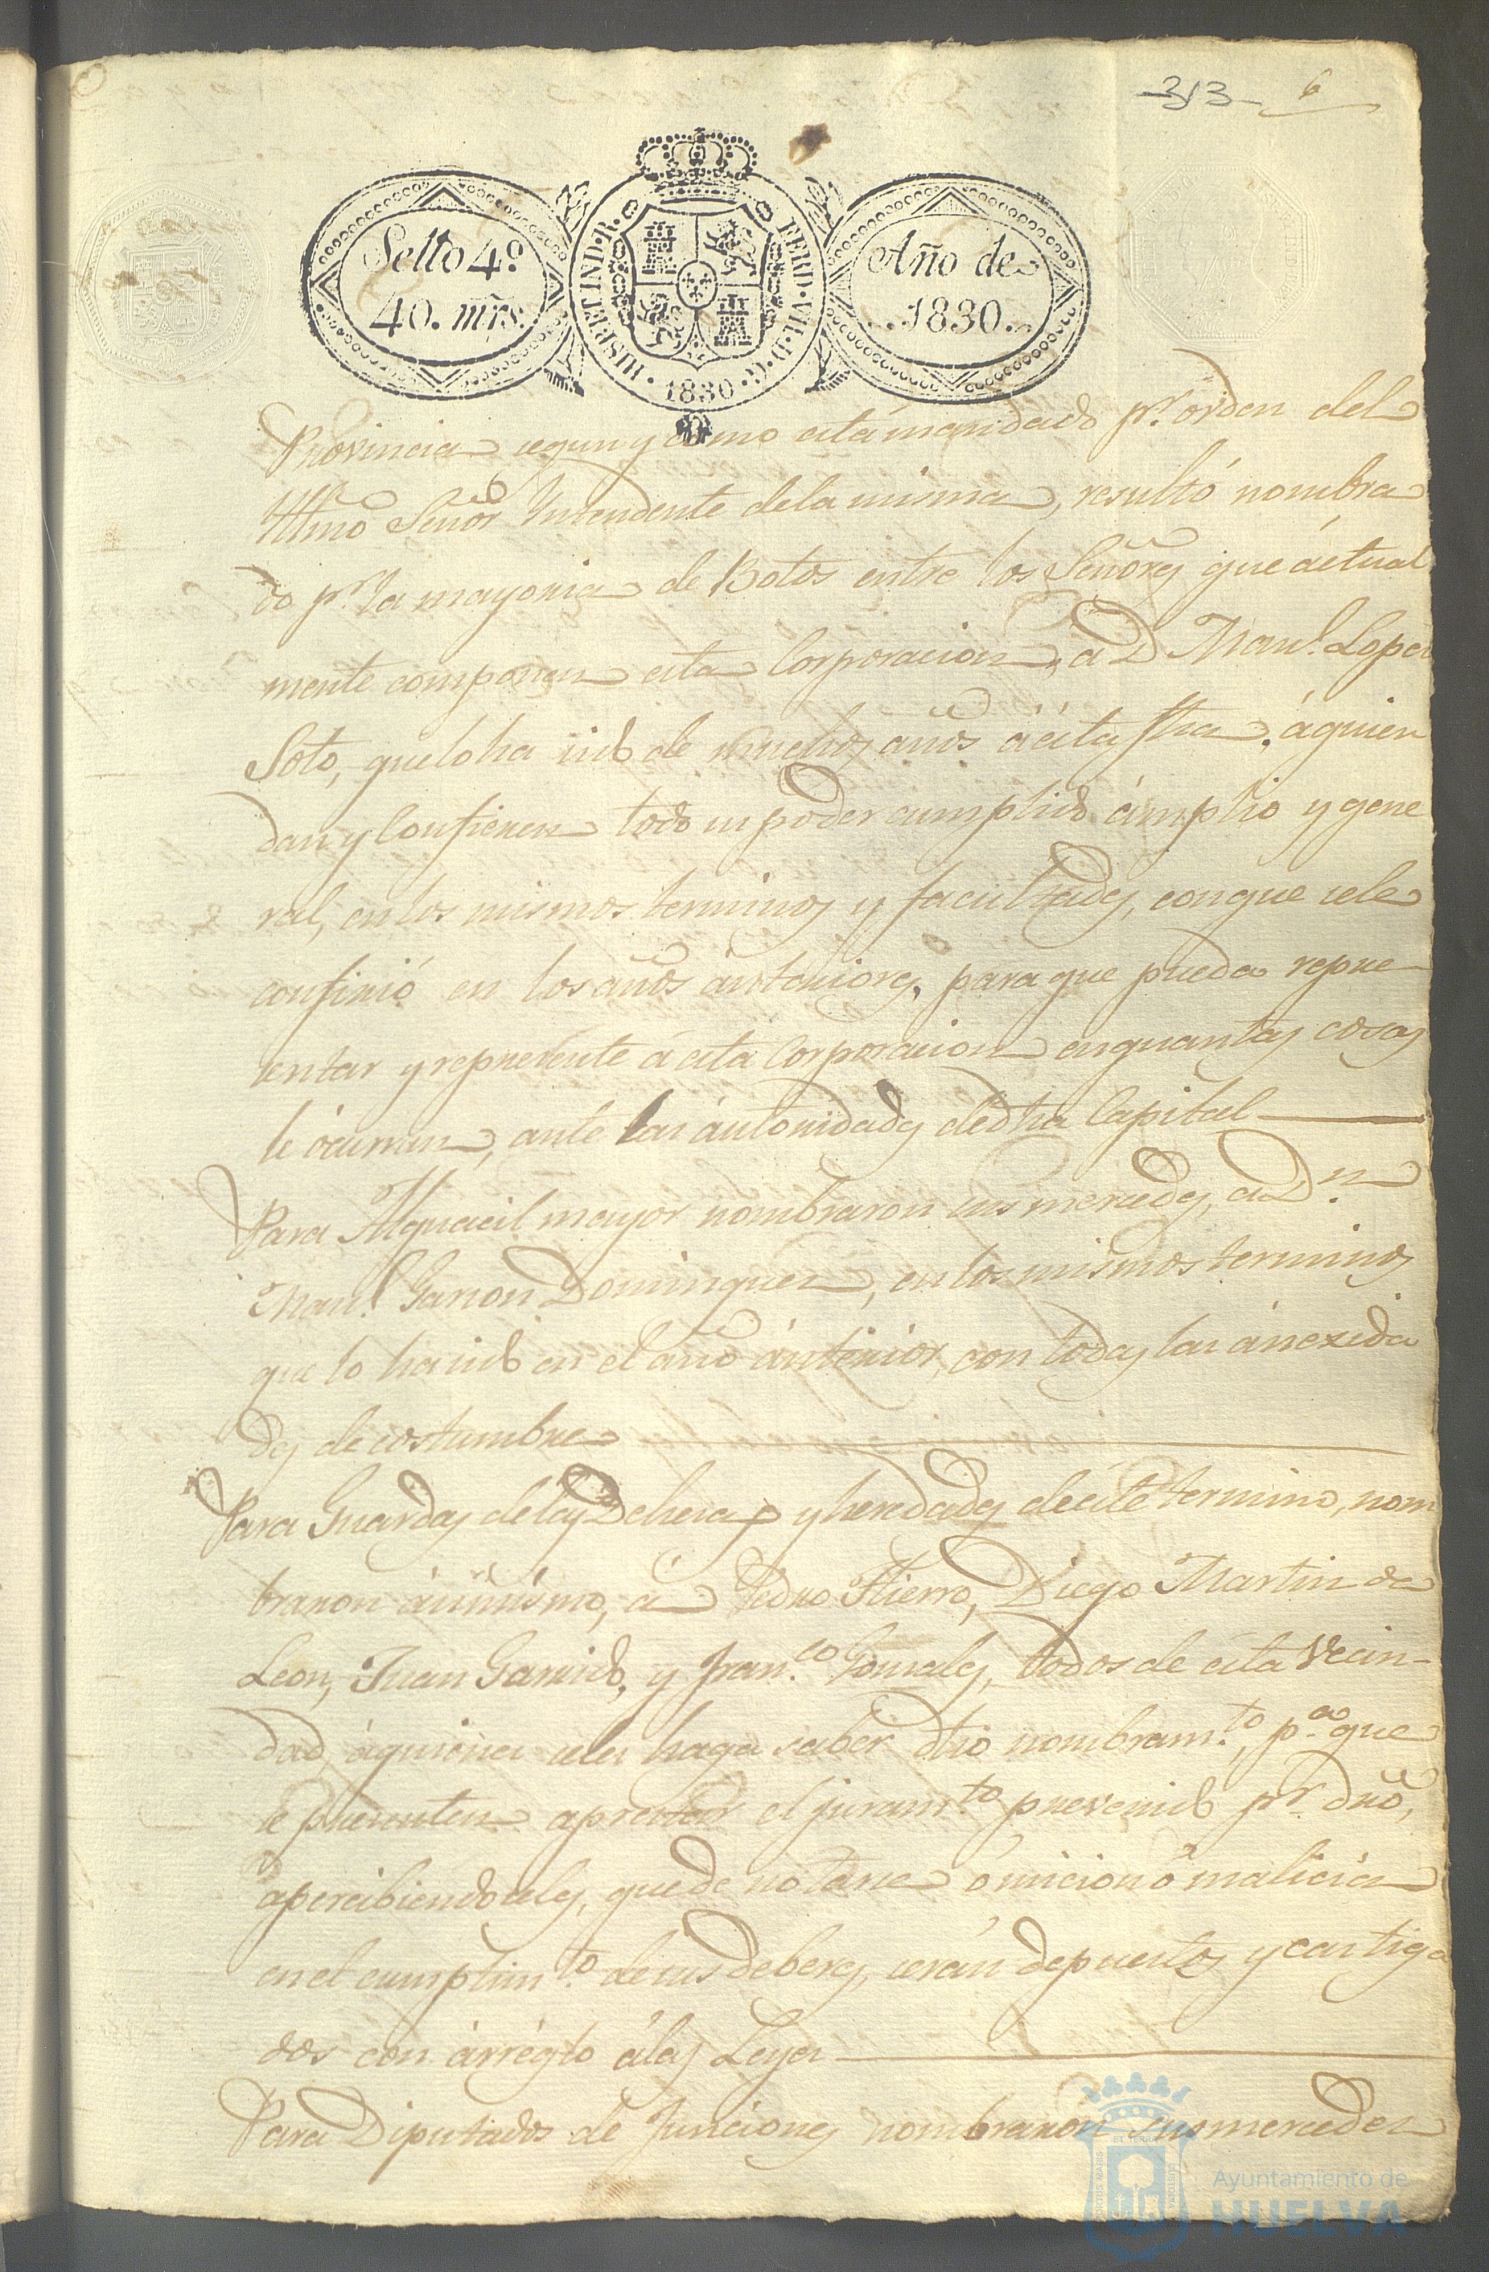 313 6
Sello 4º
40. mrs.
HISP. ET IND. R.
FERD. VII. D. G.
1830
Año de
1830.
Provincia segun y como está mandado pr. orden del
Yllmo Señor Yntendente dela misma, resultó nombra
do pr. la mayoria de Botos entre los Señores que áctual
mente componen esta Corporacion, a D Manl. Lopez
Soto, quelo ha sido de muchos años á ésta fha. áquien
dan y Confieren todo su poder cumplido ámplio y gene
ral, en los mismos terminos y facultades, conque sele
confirió en los años ánteriores, para que pueda repre
sentar y represente á ésta Corporacion enquantas cosas
le ócurran, ante las áutoridades dedha Capital
Para Alguacil mayor nombraron sus mercedes, a Dn.
Manl. Garzon Dominguez, en los mismos terminos
que lo ha sido en el año ánterior, con todas las ánexida
des de costumbre
Para Guardas delas Dehesas y heredades deéste termino, nom
braron ásimismo, á Pedro Hierro, Diego Martin de
Leon, Juan Garrido, y Franco. Gonzales, todos de ésta Vecin-
dad, áquienes seles haga saber dho nombramto., pa. que
se presenten aprestar el juramto. prevenido pr. dro,
apercibiendoseles, quede notarse ómicion ó malicia
en el cumplimto. desus deberes, serán depuestos y castiga
dos con árréglo álas Leyes
Para Diputados de Funciones nombraron sus mercedes
Ayuntamiento de
HUELVA